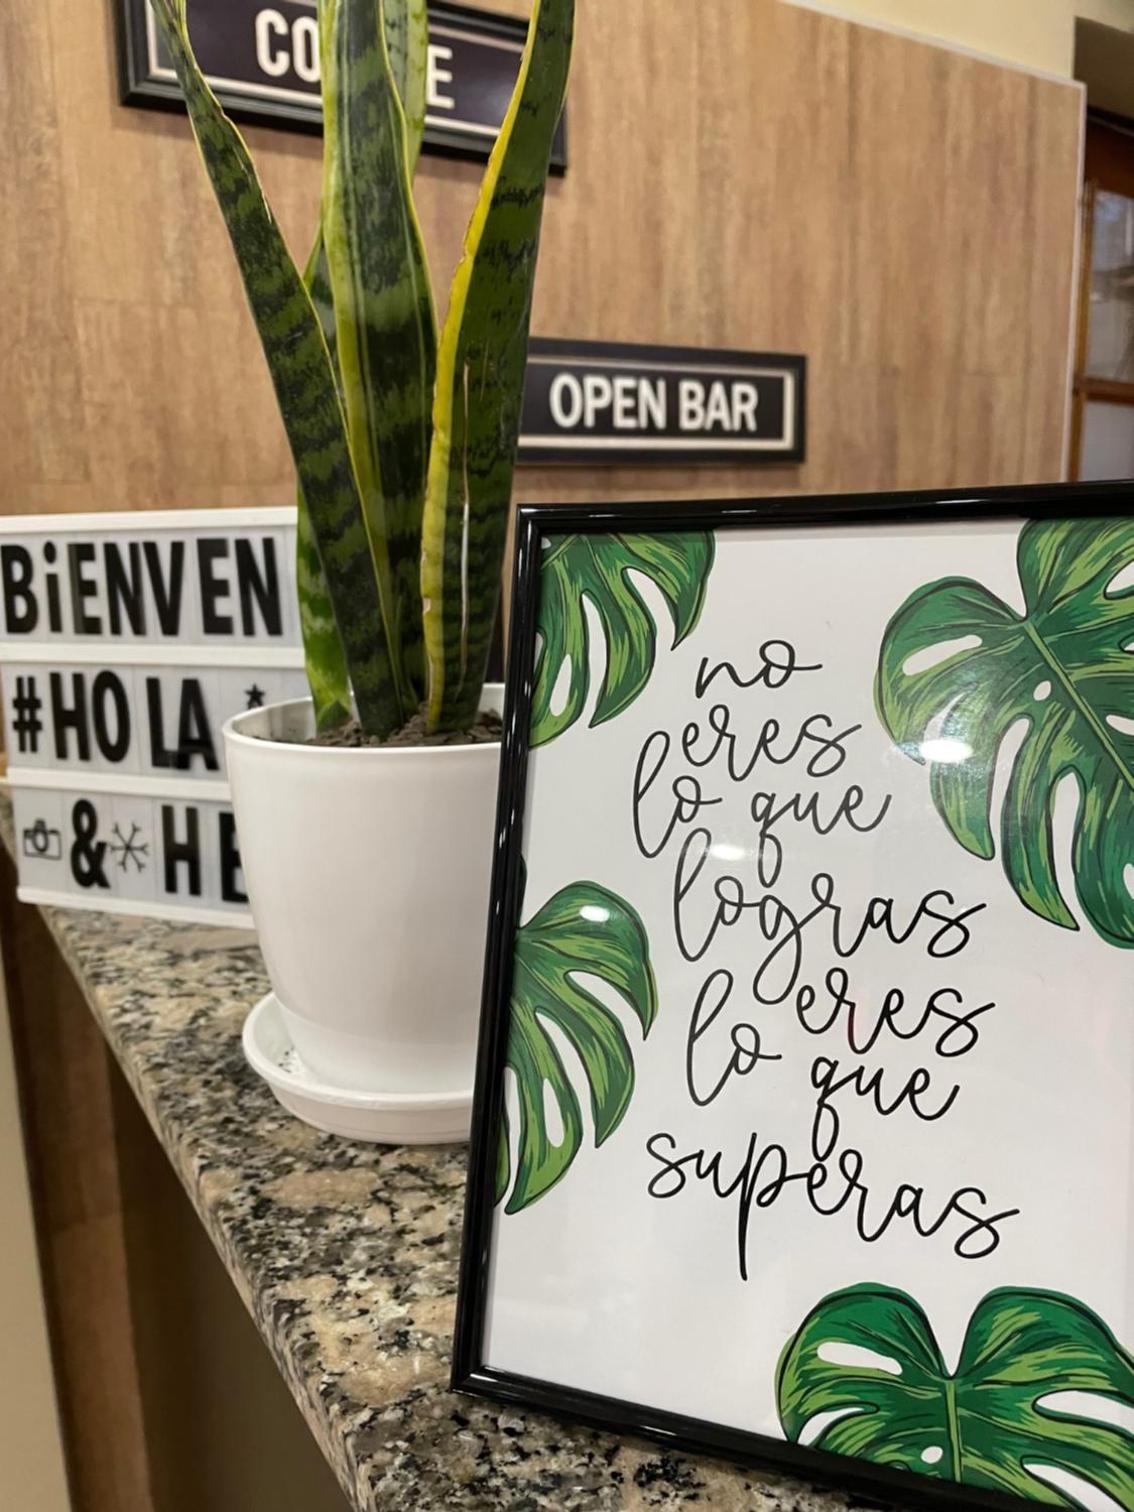 OPEN BAR
BiENVEN
#HOLA
& HE
no
eres
lo que
logras
eres
lo que
superas